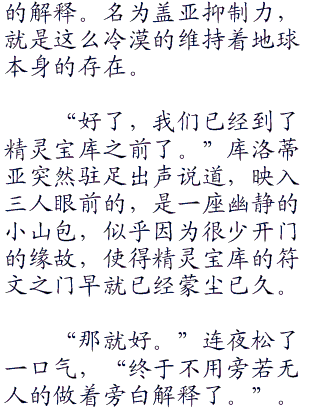 的解释。名为盖亚抑制力，
就是这么冷漠的维持着地球
本身的存在。
“好了，我们已经到了
精灵宝库之前了。”库洛蒂
亚突然驻足出声说道，映入
三人眼前的，是一座幽静的
小山包，似乎因为很少开门
的缘故，使得精灵宝库的符
文之门早就已经蒙尘已久。
“那就好。”连夜松了
一口气，“终于不用旁若无
人的做着旁白解释了。”。